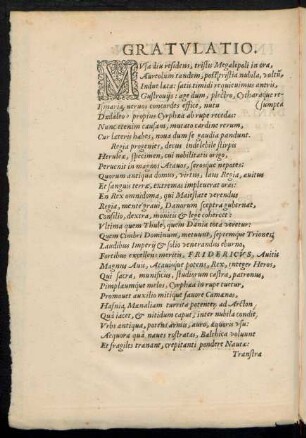 GRATVLATIO.
MVsa diu residens, tristis Megalopoli in ora,
Aureolum tandem, post tristia nubila, vultum,
Indue læta: satis timidi requievimus antris,
Gustrovijs: age dum, plectro, Citharaque re-
Ismaria, nervos concordes effice, nutu (sumpta
Dædaleo: propius Cyrrhæa ab rupe recedas:
Nunc etenim causam, mutato cardine rerum,
Cur læteris habes, nova dum se gaudia pandunt.
Regia progenies, decus indelebile stirpis
Heruleæ, specimen, cui nobilitatis origo,
Pervenit in magnos Atavos, seraque nepotes:
Quorum antiqua domus, virtus, laus Regia, avitus
Et sanguis terræ, extremas impleverat oras:
En Rex omnidoma, qui Maiestate verendus
Regia, mente gravi, Danorum sceptra gubernat,
Consilio, dextra, monitis & lege cohercet:
Vltima quem Thule, quem Dania tota veretur:
Quem Cimbri Dominum, metuunt, septemque Triones,
Laudibus Imperij & solio venerandus eburno,
Fortibus excellens meritis, FRIDERICVS, Avitis
Magnus Avis, Atavisque potens, Rex, integer Heros,
Qui sacra, munificus, studiorum castra, patronus,
Pimplæumque melos, Cyrrhæa in rupe tuetur,
Promovet auxilio mitique favore Camœnas.
Hafnia, Mænaliam turrita potentes ad Arcton,
Qua iacet, & nitidum caput, inter nubila condit,
Vrbs antiqua, potens armis, auro, æquoris usu:
Æquora quà naves rostratas, Balthica volvunt
Et fragiles tranant, crepitanti pondere Nautæ:
Transtra